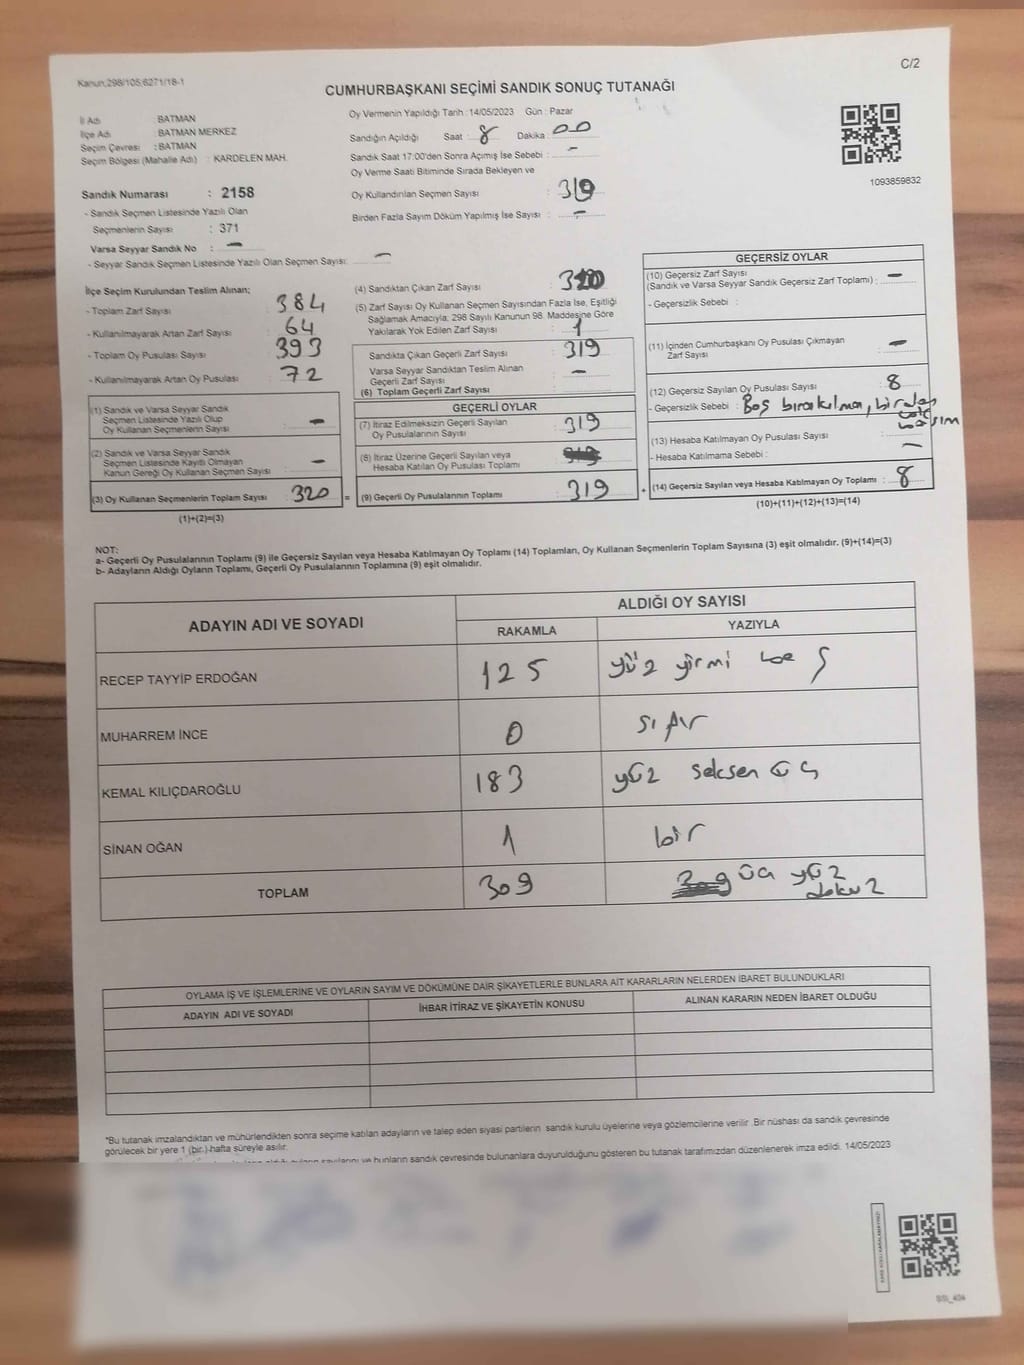 Kanun,298/105,6271/18-1
C/2
CUMHURBAŞKANI SEÇİMİ SANDIK SONUÇ TUTANAĞI
İl Adı BATMAN
İlçe Adı BATMAN MERKEZ
Seçim Çevresi : BATMAN
Seçim Bölgesi (Mahalle Adı) : KARDELEN MAH.
Sandık Numarası : 2158
- Sandık Seçmen Listesinde Yazılı Olan
Seçmenlerin Sayısı : 371
Varsa Seyyar Sandık No : -
- Seyyar Sandık Seçmen Listesinde Yazılı Olan Seçmen Sayısı: -
Oy Vermenin Yapıldığı Tarih : 14/05/2023 Gün : Pazar
Sandığın Açıldığı Saat : 8 Dakika : 00
Sandık Saat 17:00'den Sonra Açımış İse Sebebi : -
Oy Verme Saati Bitiminde Sırada Bekleyen ve
Oy Kullandırılan Seçmen Sayısı : 319
Birden Fazla Sayım Döküm Yapılmış İse Sayısı : -
1093859832
İlçe Seçim Kurulundan Teslim Alınan;
- Toplam Zarf Sayısı : 384
- Kullanılmayarak Artan Zarf Sayısı : 64
- Toplam Oy Pusulası Sayısı : 393
- Kullanılmayarak Artan Oy Pusulası : 72
(1) Sandık ve Varsa Seyyar Sandık
Seçmen Listesinde Yazılı Olup
Oy Kullanan Seçmenlerin Sayısı : -
(2) Sandık ve Varsa Seyyar Sandık
Seçmen Listesinde Kayıtlı Olmayan
Kanun Gereği Oy Kullanan Seçmen Sayısı : -
(3) Oy Kullanan Seçmenlerin Toplam Sayısı : 320 =
(1)+(2)=(3)
(4) Sandıktan Çıkan Zarf Sayısı : 320
(5) Zarf Sayısı Oy Kullanan Seçmen Sayısından Fazla İse, Eşitliği
Sağlamak Amacıyla, 298 Sayılı Kanunun 98. Maddesine Göre
Yakılarak Yok Edilen Zarf Sayısı : 1
Sandıkta Çıkan Geçerli Zarf Sayısı : 319
Varsa Seyyar Sandıktan Teslim Alınan
Geçerli Zarf Sayısı : -
(6) Toplam Geçerli Zarf Sayısı :
GEÇERLİ OYLAR
(7) İtiraz Edilmeksizin Geçerli Sayılan
Oy Pusulalarının Sayısı : 319
(8) İtiraz Üzerine Geçerli Sayılan veya
Hesaba Katılan Oy Pusulası Toplamı :
(9) Geçerli Oy Pusulalarının Toplamı : 319 +
GEÇERSİZ OYLAR
(10) Geçersiz Zarf Sayısı
(Sandık ve Varsa Seyyar Sandık Geçersiz Zarf Toplamı) : -
- Geçersizlik Sebebi :
(11) İçinden Cumhurbaşkanı Oy Pusulası Çıkmayan
Zarf Sayısı : -
(12) Geçersiz Sayılan Oy Pusulası Sayısı : 8
- Geçersizlik Sebebi : Boş bırakılma,
(13) Hesaba Katılmayan Oy Pusulası Sayısı : -
- Hesaba Katılmama Sebebi :
(14) Geçersiz Sayılan veya Hesaba Katılmayan Oy Toplamı : 8
(10)+(11)+(12)+(13)=(14)
NOT:
a- Geçerli Oy Pusulalarının Toplamı (9) ile Geçersiz Sayılan veya Hesaba Katılmayan Oy Toplamı (14) Toplamları, Oy Kullanan Seçmenlerin Toplam Sayısına (3) eşit olmalıdır. (9)+(14)=(3)
b- Adayların Aldığı Oyların Toplamı, Geçerli Oy Pusulalarının Toplamına (9) eşit olmalıdır.
ADAYIN ADI VE SOYADI ALDIĞI OY SAYISI
RAKAMLA YAZIYLA
RECEP TAYYİP ERDOĞAN 125 yüz yirmi beş
MUHARREM İNCE 0 sıfır
KEMAL KILIÇDAROĞLU 183 yüz seksen üç
SİNAN OĞAN 1 bir
TOPLAM 309 309 üç yüz
dokuz
OYLAMA İŞ VE İŞLEMLERİNE VE OYLARIN SAYIM VE DÖKÜMÜNE DAİR ŞİKAYETLERLE BUNLARA AİT KARARLARIN NELERDEN İBARET BULUNDUKLARI
ADAYIN ADI VE SOYADI İHBAR İTİRAZ VE ŞİKAYETİN KONUSU ALINAN KARARIN NEDEN İBARET OLDUĞU
"Bu tutanak imzalandıktan ve mühürlendikten sonra seçime katılan adayların ve talep eden siyasi partilerin sandık kurulu üyelerine veya gözlemcilerine verilir. Bir nüshası da sandık çevresinde
görülecek bir yere 1 (bir) hafta süreyle asılır.
sayılarını ve bunların sandık çevresinde bulunanlara duyurulduğunu gösteren bu tutanak tarafımızdan düzenlenerek imza edildi. 14/05/2023